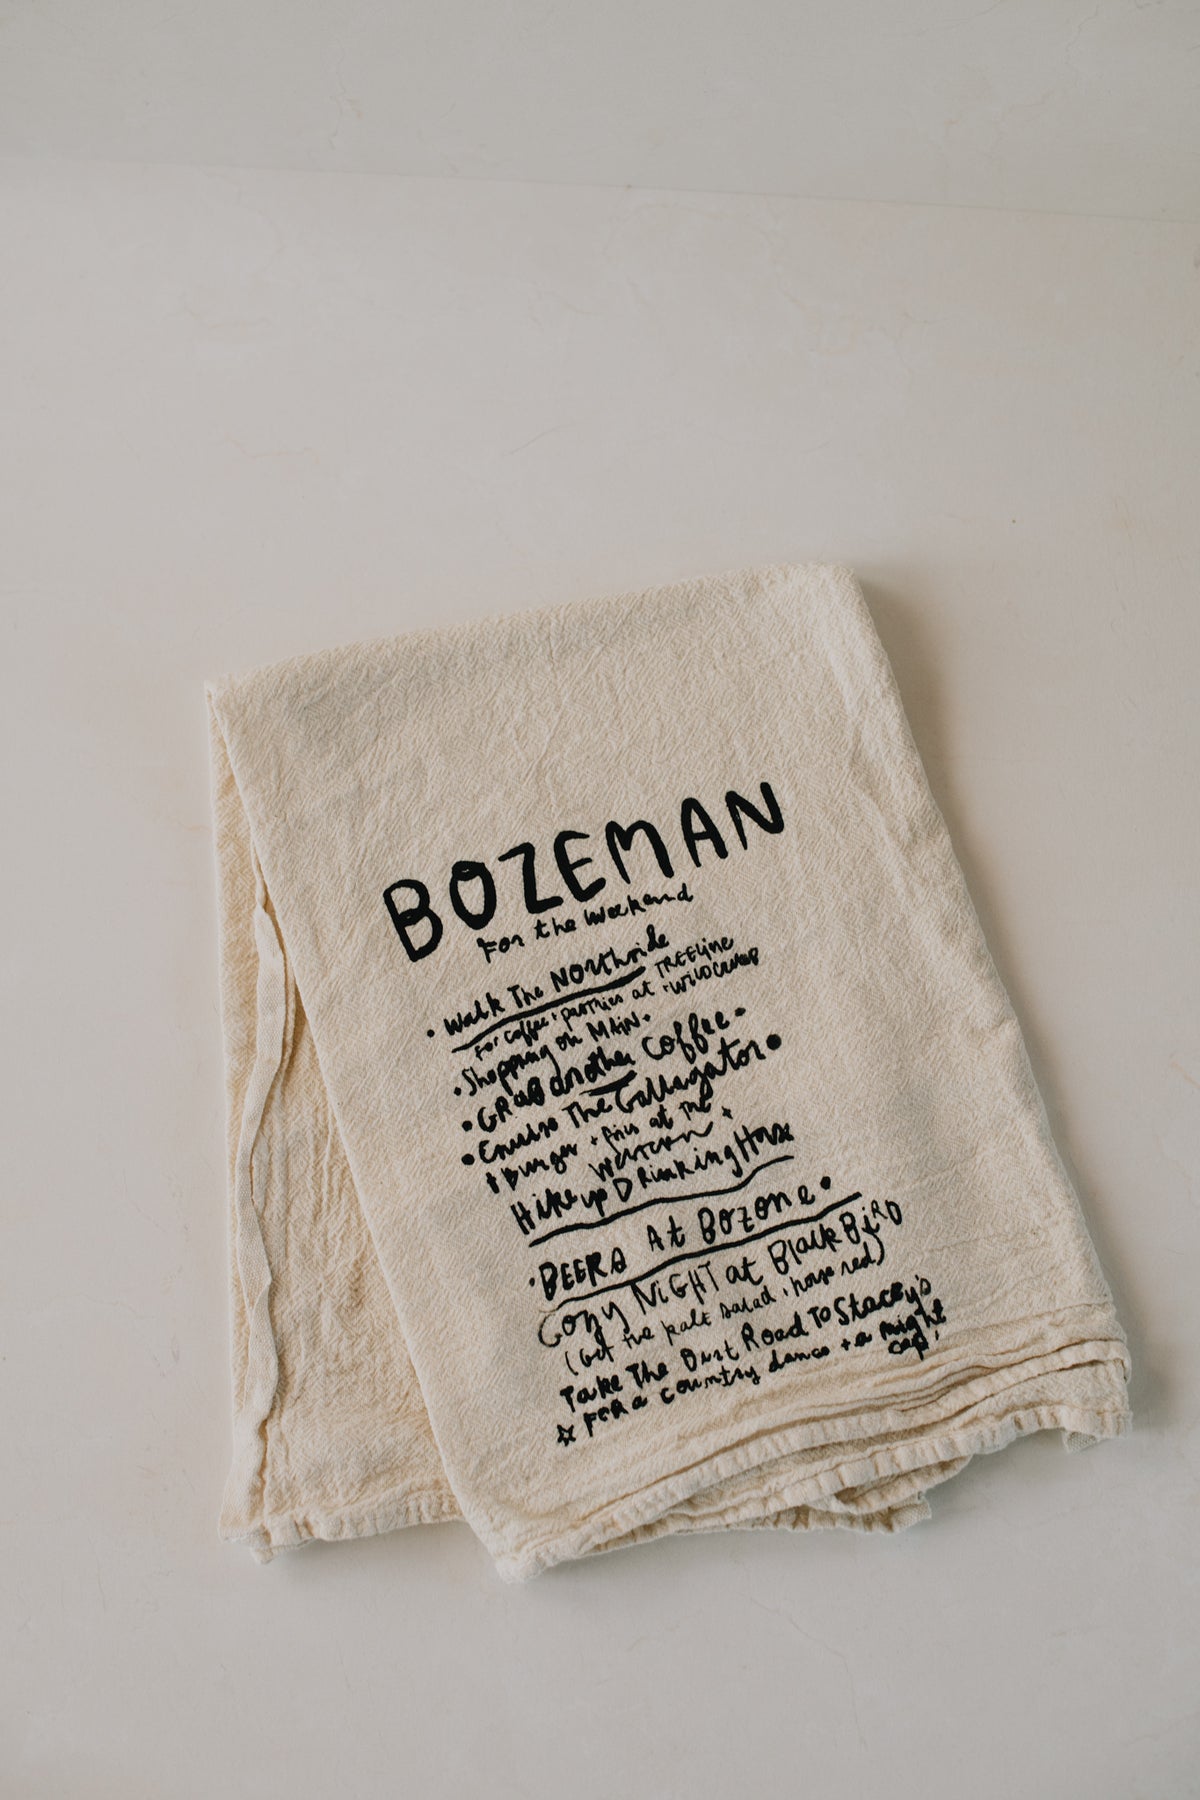 BOZEMAN
For the Weekend
• Walk The Northside
For coffee + pastries at • TREELINE
• WILD CRUMB
• Shopping on MAIN •
• GRAB another Coffee •
• Cruise The Gallagator •
+ Burger + fries at The
Western +
Hike up Drinking Horse
• BEERS At Bozone •
Cozy NIGHT at BlackBIRD
(Get the kale salad + house red)
Take The Dirt Road To Stacey's
☆ FOR a country dance + a night
cap!